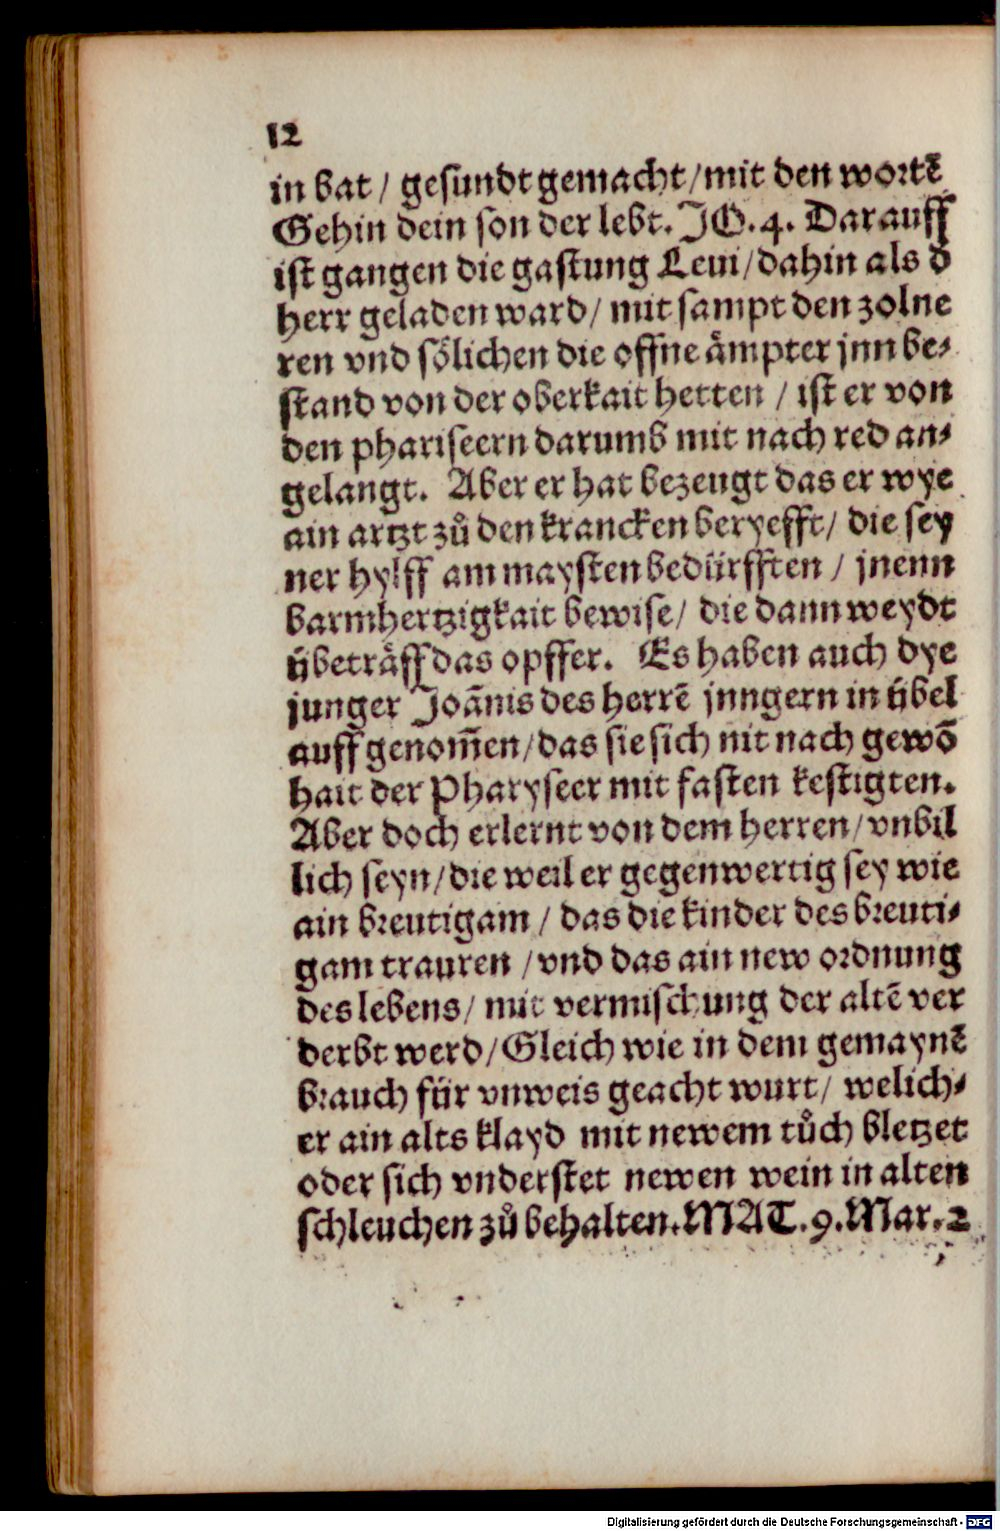 12
in bat / gesundt gemacht / mit den wortē
Gehin dein son der lebt. JO. 4. Darauff
ist gangen die gastung Leui / dahin als d̄
herr geladen ward / mit sampt den zolne
ren vnd sölichen die offne ämpter jnn be⸗
stand von der oberkait hetten / ist er von
den phariseern darumb mit nach red an⸗
gelangt. Aber er hat bezeugt das er wye
ain artzt zů den krancken beryefft / die sey
ner hylff am maysten bedürfften / jnenn
barmhertzigkait bewise / die dann weydt
übeträff das opffer. Es haben auch dye
junger Joānis des herrē jungern in übel
auff genom̄en / das sie sich nit nach gewō
hait der Pharyseer mit fasten kestigten.
Aber doch erlernt von dem herren / vnbil
lich seyn / die weil er gegenwertig sey wie
ain breutigam / das die kinder des breuti⸗
gam trauren / vnd das ain new ordnung
des lebens / mit vermischung der altē ver
derbt werd / Gleich wie in dem gemaynē
brauch für vnweis geacht wurt / welich⸗
er ain alts klayd mit newem tůch bletzet
oder sich vnderstet newen wein in alten
schleuchen zů behalten. MAT. 9. Mar. 2
Digitalisierung gefördert durch die Deutsche Forschungsgemeinschaft - DFG